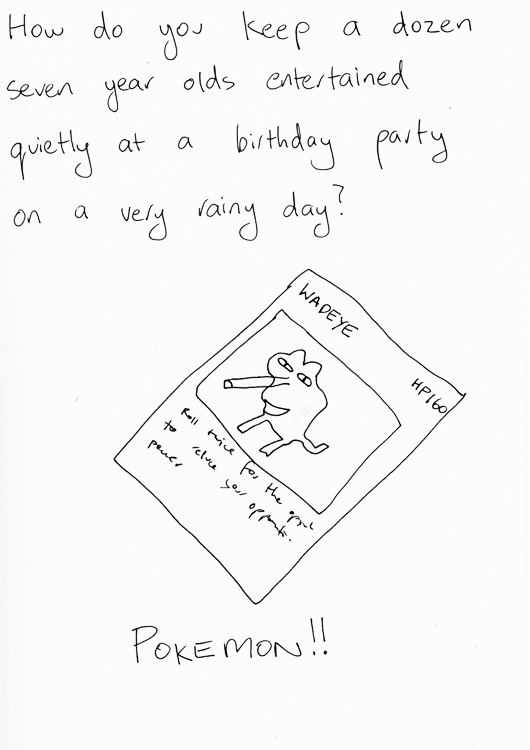 How do you keep a dozen
seven year olds entertained
quietly at a birthday party
on a very rainy day?
WADEYE
HP160
Roll twice for the
to your
power
POKEMON!!